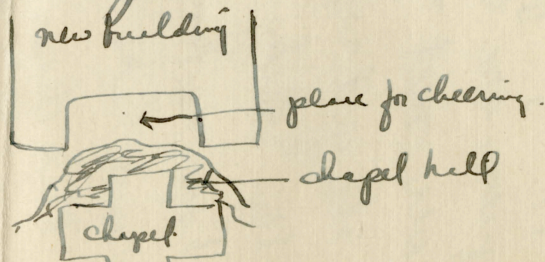 new building
place for cheering.
chapel hill
chapel